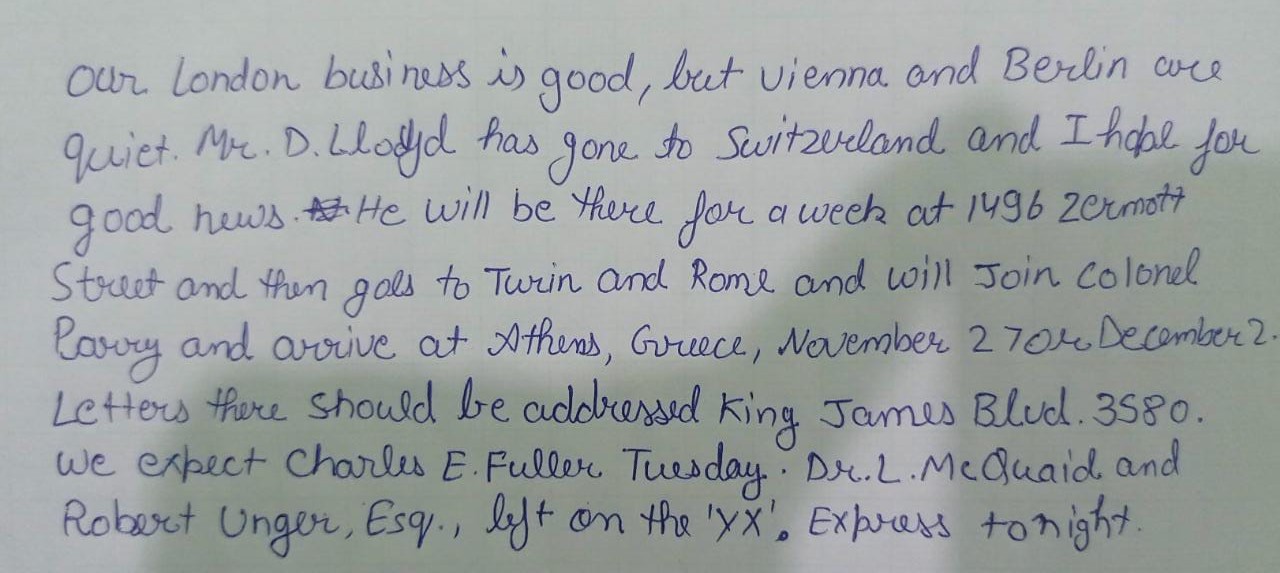 Our London business is good, but Vienna and Berlin are
quiet. Mr. D. Lloyd has gone to Switzerland and I hope for
good news. He will be there for a week at 1496 Zermott
Street and then goes to Turin and Rome and will Join Colonel
Parry and arrive at Athens, Greece, November 27 or December 2.
Letters there should be addressed King James Blvd. 3580.
We expect Charles E. Fuller Tuesday. Dr. L. McQuaid and
Robert Unger, Esq., left on the 'YX'. Express tonight.